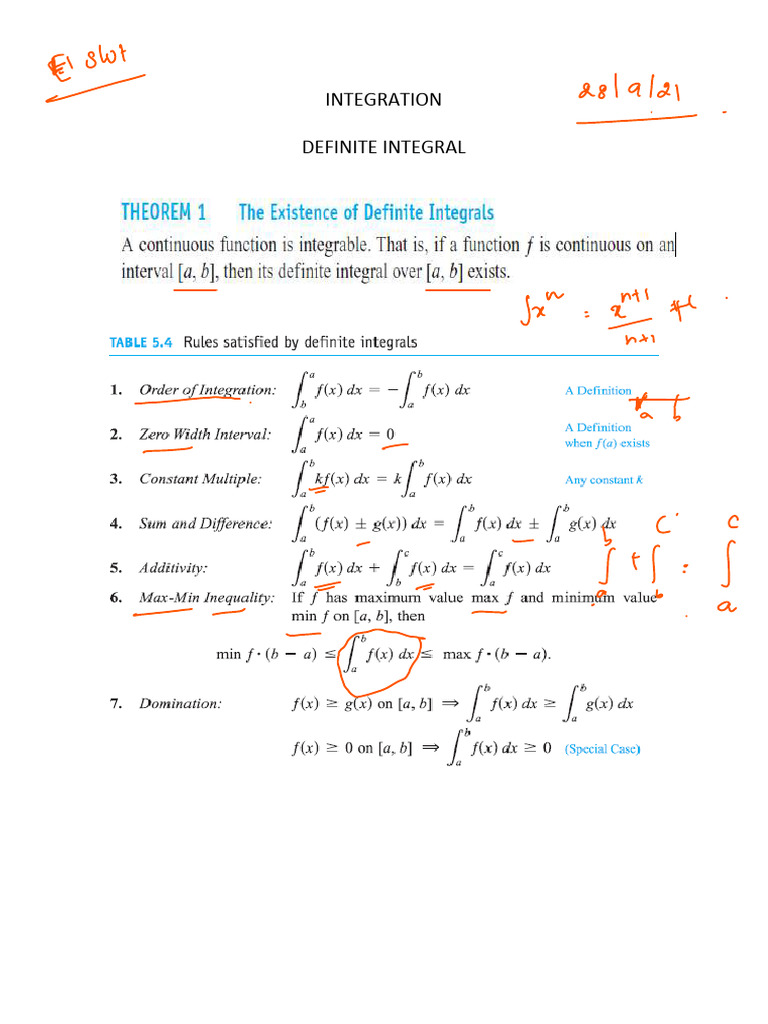 E1 slot
28/9/21
INTEGRATION
DEFINITE INTEGRAL
THEOREM 1 The Existence of Definite Integrals
A continuous function is integrable. That is, if a function f is continuous on an
interval [a, b], then its definite integral over [a, b] exists.
∫xⁿ = xⁿ⁺¹/n+1 +c
TABLE 5.4 Rules satisfied by definite integrals
1. Order of Integration: ∫_b^a f(x) dx = −∫_a^b f(x) dx A Definition
a b
2. Zero Width Interval: ∫_a^a f(x) dx = 0 A Definition
when f(a) exists
3. Constant Multiple: ∫_a^b kf(x) dx = k ∫_a^b f(x) dx Any constant k
4. Sum and Difference: ∫_a^b (f(x) ± g(x)) dx = ∫_a^b f(x) dx ± ∫_a^b g(x) dx
5. Additivity: ∫_a^b f(x) dx + ∫_b^c f(x) dx = ∫_a^c f(x) dx
∫_a^b + ∫_b^c = ∫_a^c
6. Max-Min Inequality: If f has maximum value max f and minimum value
min f on [a, b], then
min f · (b − a) ≤ ∫_a^b f(x) dx ≤ max f · (b − a).
7. Domination: f(x) ≥ g(x) on [a, b] ⇒ ∫_a^b f(x) dx ≥ ∫_a^b g(x) dx
f(x) ≥ 0 on [a, b] ⇒ ∫_a^b f(x) dx ≥ 0 (Special Case)